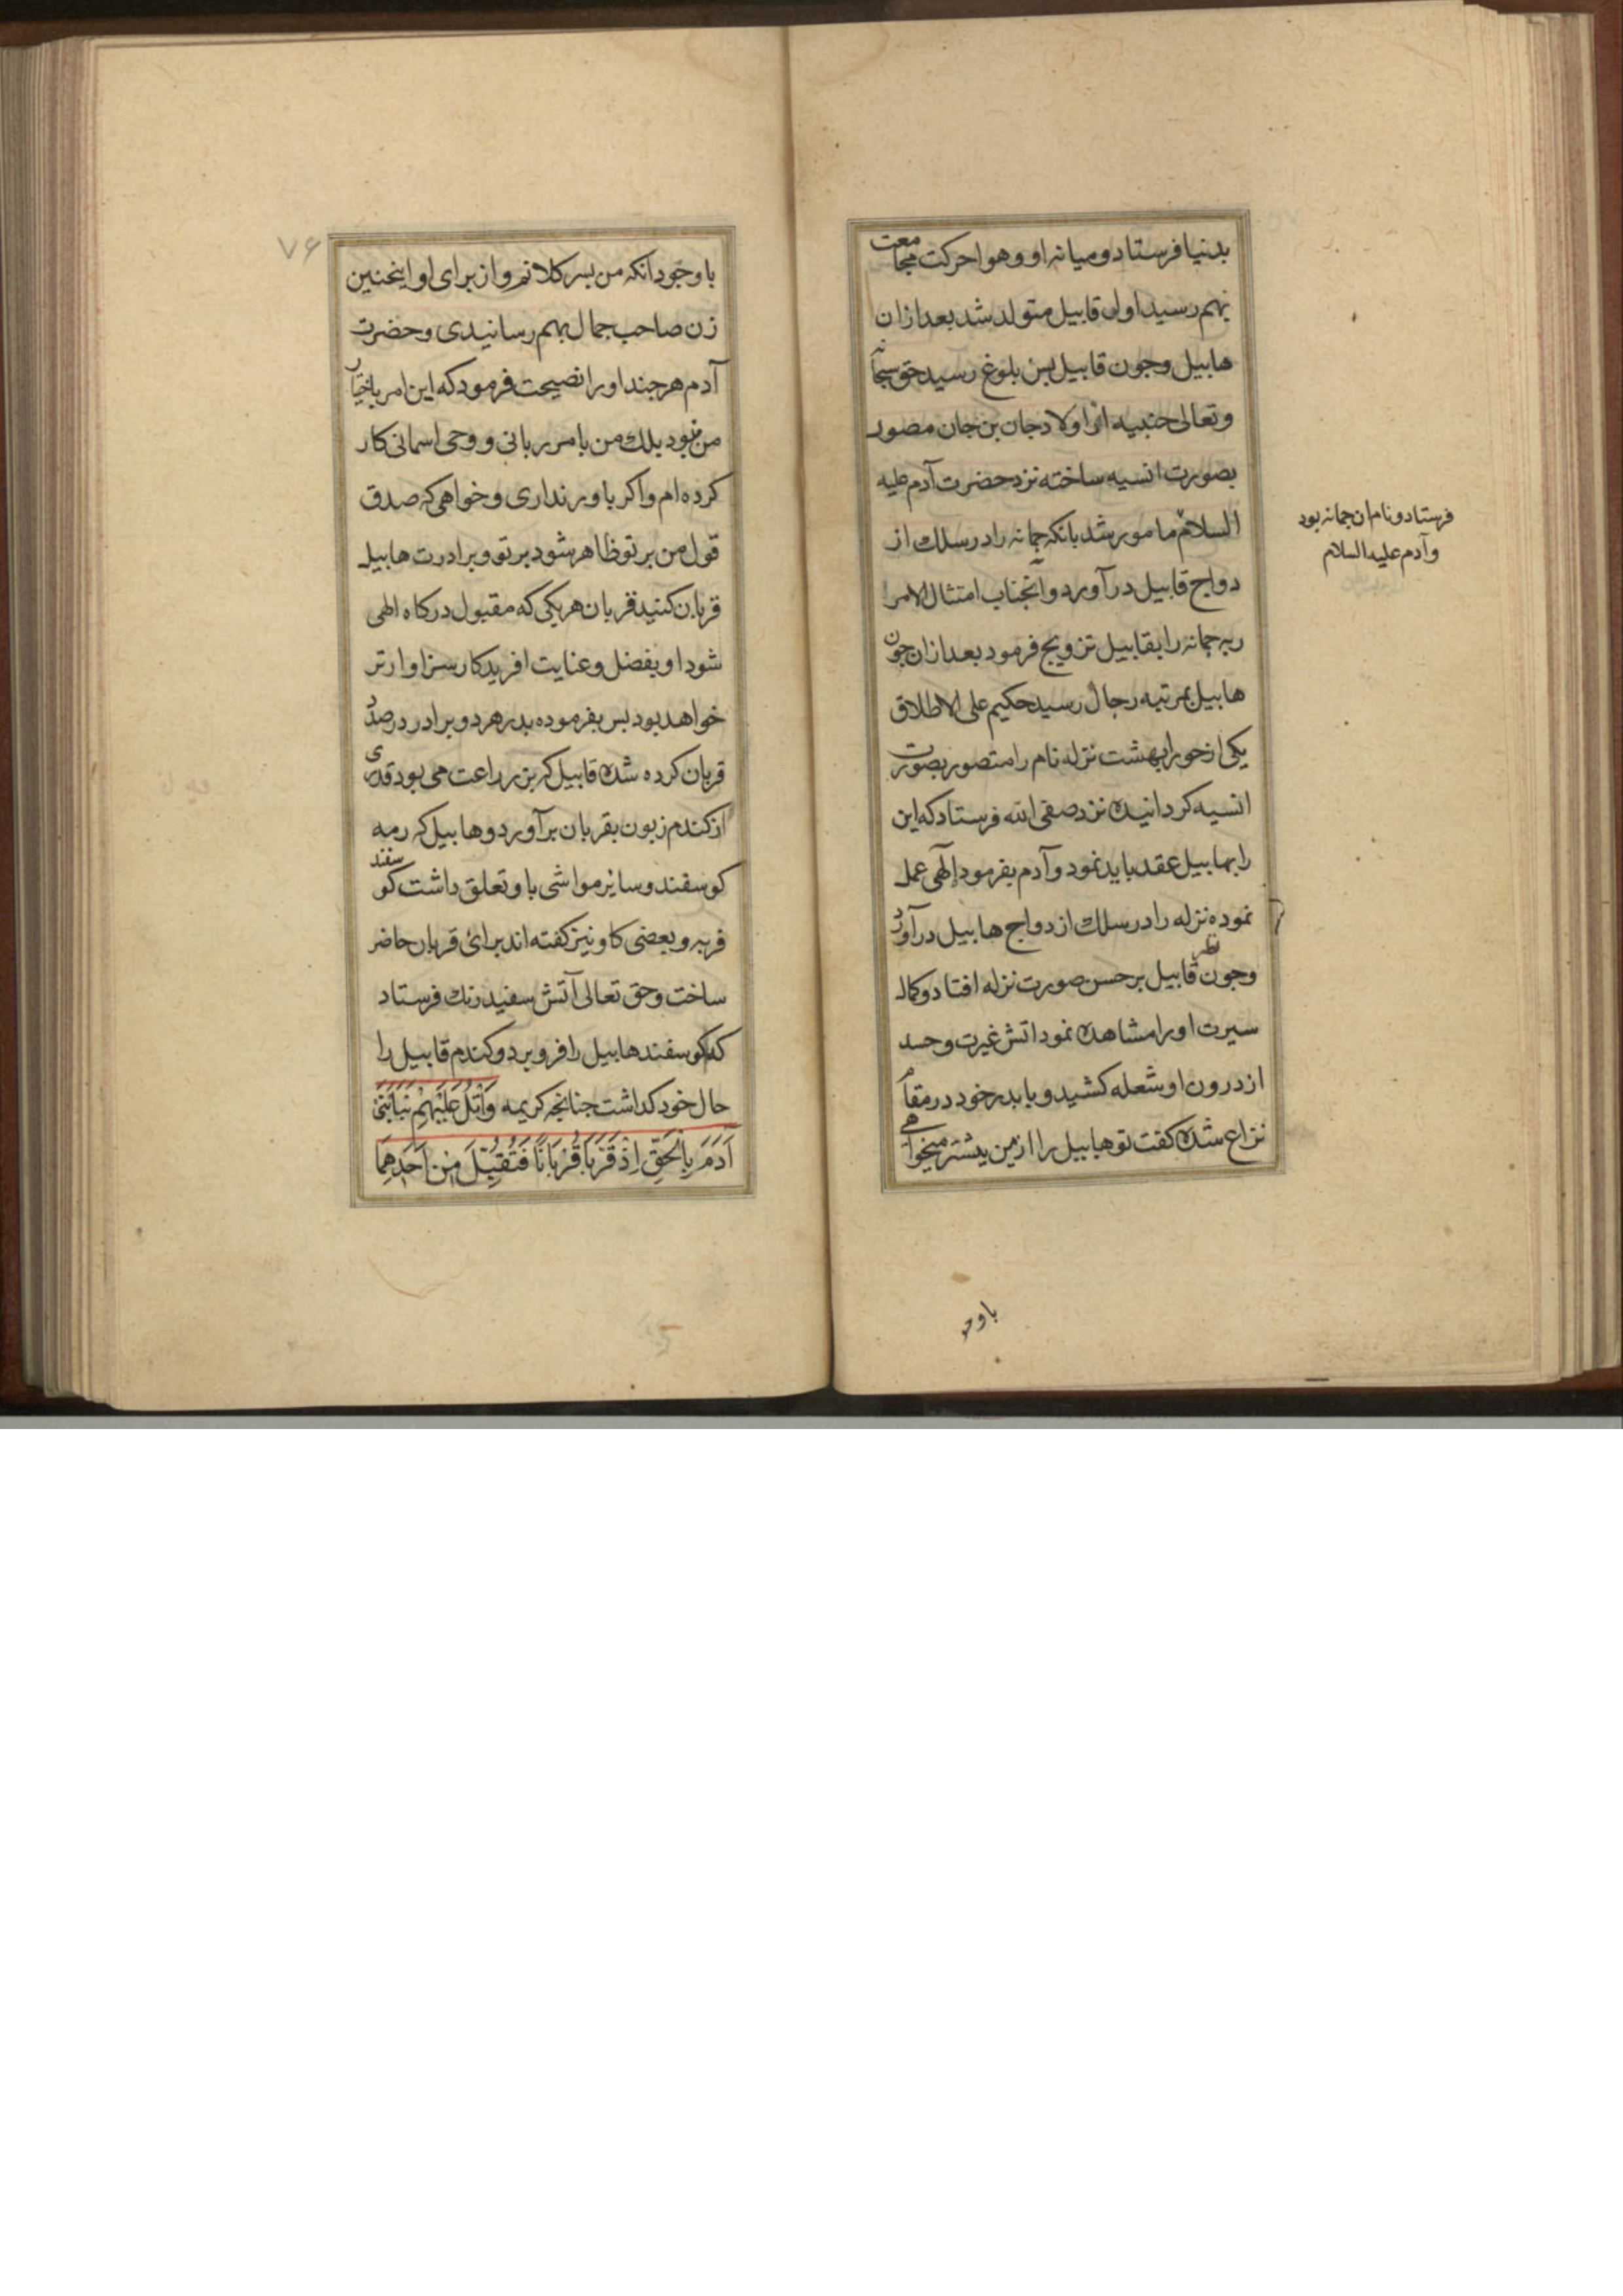 بدنیا فرستاد و میانه او و هوا حرکت مجامعت
بهم رسید اول قابیل متولد شد بعد ازان
هابیل وجون قابیل بسن بلوغ رسید حق سبحانه
وتعالی جنیه از اولاد جان بن جان مصور
بصورت انسیه ساخته نزد حضرت آدم علیه
السلام مامور شد بانکه جمانه را در سلك از
دواج قابیل در آورد و آنجناب امتثال الامر
ربه جمانه را بقابیل تزویج فرمود بعد ازان جون
هابیل بمرتبه رجال رسید حکیم علی الاطلاق
یکی از حورا بهشت نزله نام را متصور بصورت
انسیه کردانیده نزد صفی الله فرستاد که این
را بهابیل عقد باید نمود و آدم بفرمود إلهی عمل
نموده نزله را در سلك ازدواج هابیل در آورد
وجون نظر قابیل بر حسن صورت نزله افتاد و کمال
سیرت او را مشاهده نمود اتش غیرت و حسد
از درون او شعله کشید و با بدر خود در مقام
نزاع شده کفت تو هابیل را از من بیشتر میخواهی
فرستاد و نام ان جمانه بود
و آدم علیه السلام
باوجو
۷۶
با وجود آنکه من بسر کلانم و از برای او اینجنین
زن صاحب جمال بهم رسانیدی و حضرت
آدم هر جند او را نصیحت فرمود که این امر باختیار
من نبود بلك من بامر ربانی و وحی اسمانی کار
کرده ام و اکر باور نداری و خواهی که صدق
قول من بر تو ظاهر شود بر تو و برادرت هابیل
قربان کنید قربان هر یکی که مقبول درکاه الهی
شود او بفضل و عنایت افریدکار سزاوارتر
خواهد بود بس بفرموده بدر هر دو برادر در صدد
قربان کرده شده قابیل که بزراعت می بود قدری
از کندم زبون بقربان برآورد و هابیل که رمه
کوسفند و سایر مواشی باو تعلق داشت کوسفند
فربه و بعضی کاو نیز کفته اند برائ قربان حاضر
ساخت و حق تعالی آتش سفید رنك فرستاد
که کوسفند هابیل را فرو برد و کندم قابیل را
حال خود کذاشت جنانجه کریمه وَاتْلُ عَلَيْهِمْ نَبَأَ ابْنَيْ
آدَمَ بِالْحَقِّ اِذْ قَرَّبَا قُرْبَانًا فَتُقُبِّلَ مِنْ اَحَدِهِمَا